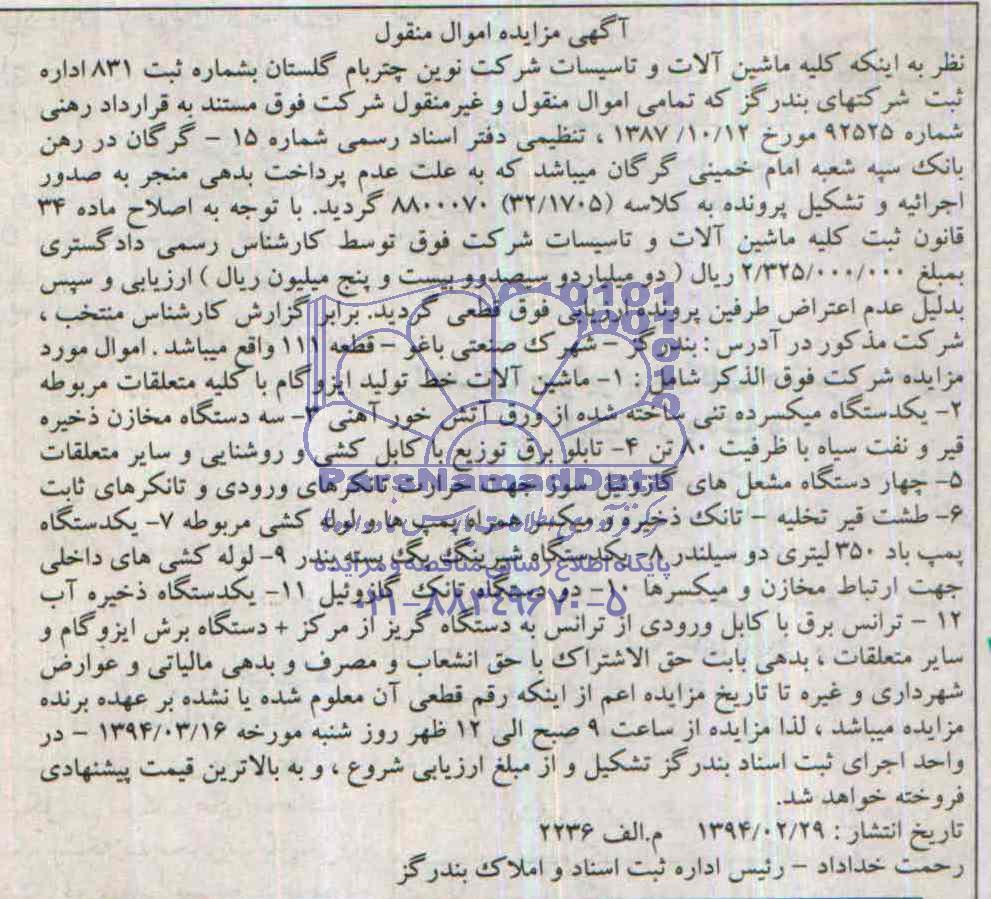 آگهی مزایده اموال منقول
نظر به اینکه کلیه ماشین آلات و تاسیسات شرکت نوین چتربام گلستان بشماره ثبت ۸۳۱ اداره
ثبت شرکتهای بندرگز که تمامی اموال منقول و غیرمنقول شرکت فوق مستند به قرارداد رهنی
شماره ۹۲۵۲۵ مورخ ۱۳۸۷/۱۰/۱۲ ، تنظیمی دفتر اسناد رسمی شماره ۱۵ – گرگان در رهن
بانک سپه شعبه امام خمینی گرگان میباشد که به علت عدم پرداخت بدهی منجر به صدور
اجرائیه و تشکیل پرونده به کلاسه (۳۲/۱۷۰۵) ۸۸۰۰۰۷۰ گردید. با توجه به اصلاح ماده ۳۴
قانون ثبت کلیه ماشین آلات و تاسیسات شرکت فوق توسط کارشناس رسمی دادگستری
بمبلغ ۲/۳۲۵/۰۰۰/۰۰۰ ریال ( دو میلیاردو سیصدوو بیست و پنج میلیون ریال ) ارزیابی و سپس
بدلیل عدم اعتراض طرفین پرونده ارزیابی فوق قطعی گردید. برابر گزارش کارشناس منتخب ،
شرکت مذکور در آدرس : بندرگز – شهرک صنعتی باغو – قطعه ۱۱۱ واقع میباشد . اموال مورد
مزایده شرکت فوق الذکر شامل : ۱- ماشین آلات خط تولید ایزوگام با کلیه متعلقات مربوطه
۲- یکدستگاه میکسرده تنی ساخته شده از ورق آتش خور آهنی ۳- سه دستگاه مخازن ذخیره
قیر و نفت سیاه با ظرفیت ۸۰ تن ۴- تابلو برق توزیع با کابل کشی و روشنایی و سایر متعلقات
۵- چهار دستگاه مشعل های گازوئیل سوز جهت حرارت تانکرهای ورودی و تانکرهای ثابت
۶- طشت قیر تخلیه – تانک ذخیره و میکسر همراه پمپ ها و لوله کشی مربوطه ۷- یکدستگاه
پمپ باد ۳۵۰ لیتری دو سیلندر ۸- یکدستگاه شیرینگ پگ بسته بندر ۹- لوله کشی های داخلی
جهت ارتباط مخازن و میکسرها ۱۰- دو دستگاه تانک گازوئیل ۱۱- یکدستگاه ذخیره آب
۱۲ – ترانس برق با کابل ورودی از ترانس به دستگاه گریز از مرکز + دستگاه برش ایزوگام و
سایر متعلقات ، بدهی بابت حق الاشتراک یا حق انشعاب و مصرف و بدهی مالیاتی و عوارض
شهرداری و غیره تا تاریخ مزایده اعم از اینکه رقم قطعی آن معلوم شده یا نشده بر عهده برنده
مزایده میباشد ، لذا مزایده از ساعت ۹ صبح الی ۱۲ ظهر روز شنبه مورخه ۱۳۹۴/۰۳/۱۶ – در
واحد اجرای ثبت اسناد بندرگز تشکیل و از مبلغ ارزیابی شروع ، و به بالاترین قیمت پیشنهادی
فروخته خواهد شد.
تاریخ انتشار : ۱۳۹۴/۰۲/۲۹ م.الف ۲۲۳۶
رحمت خداداد – رئیس اداره ثبت اسناد و املاک بندرگز
ParsNamadData
پایگاه اطلاع رسانی مناقصه و مزایده
۰۲۱-۸۸۳۴۹۶۷۰-۵